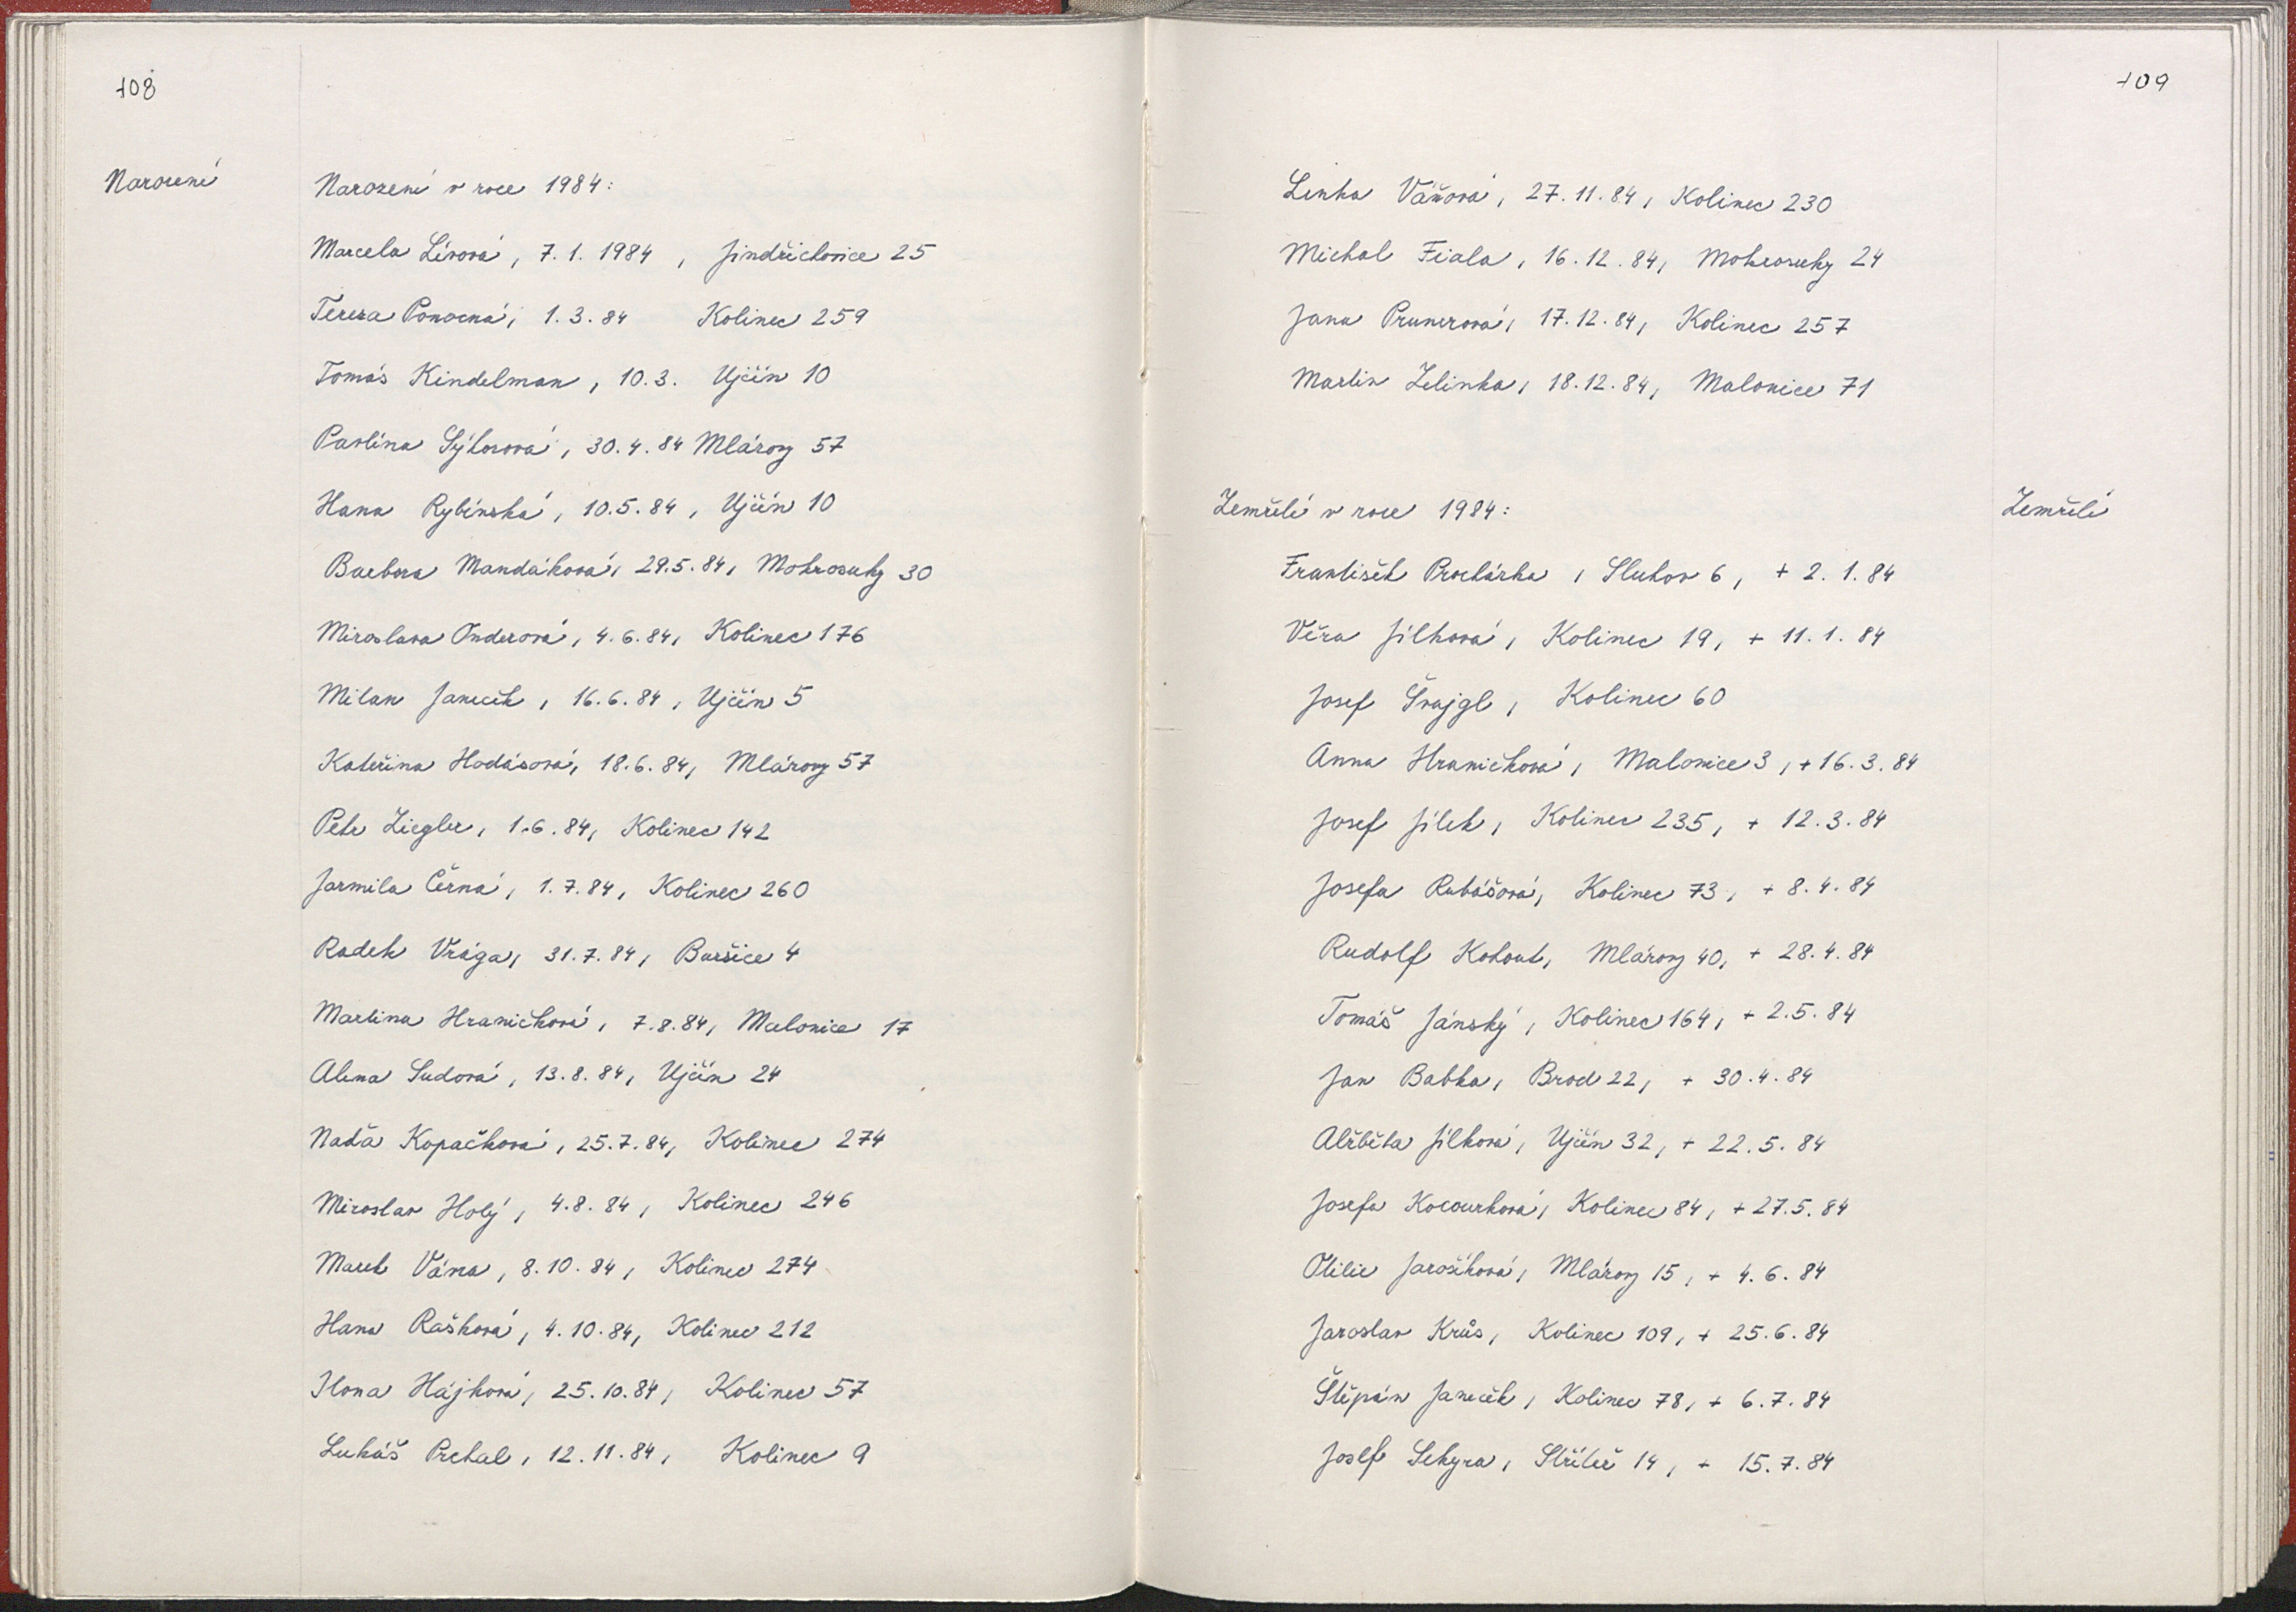 108
Narození
Narození v roce 1984:
Marcela Lívová, 7. 1. 1984, Jindřichovice 25
Tereza Ponocná, 1. 3. 84 Kolinec 259
Tomás Kindelman, 10. 3. Ujčín 10
Pavlína Sýkorová, 30. 4. 84 Mlázovy 57
Hana Rybínská, 10. 5. 84, Ujčín 10
Barbora Mandáková, 29. 5. 84, Mokrosuky 30
Miroslava Onderová, 4. 6. 84, Kolinec 176
Milan Janeček, 16. 6. 84, Ujčín 5
Kateřina Hodásová, 18. 6. 84, Mlázovy 57
Petr Ziegler, 1. 6. 84, Kolinec 142
Jarmila Černá, 1. 7. 84, Kolinec 260
Radek Vrága, 31. 7. 84, Buršice 4
Martina Hraničková, 7. 8. 84, Malonice 17
Alena Sudová, 13. 8. 84, Ujčín 24
Naďa Kopačková, 25. 7. 84, Kolinec 274
Miroslav Holý, 4. 8. 84, Kolinec 246
Marek Váňa, 8. 10. 84, Kolinec 274
Hana Rašková, 4. 10. 84, Kolinec 212
Ilona Hájková, 25. 10. 84, Kolinec 57
Lukáš Prchal, 12. 11. 84, Kolinec 9
109
Lenka Váňová, 27. 11. 84, Kolinec 230
Michal Fiala, 16. 12. 84, Mokrosuky 24
Jana Prunerová, 17. 12. 84, Kolinec 257
Martin Zelinka, 18. 12. 84, Malonice 71
Zemřelí v roce 1984:
Zemřelí
František Procházka, Sluhov 6, + 2. 1. 84
Věra Jílková, Kolinec 19, + 11. 1. 84
Josef Švajgl, Kolinec 60
Anna Hraničková, Malonice 3, + 16. 3. 84
Josef Jílek, Kolinec 235, + 12. 3. 84
Josefa Rubášová, Kolinec 73, + 8. 4. 84
Rudolf Kohout, Mlázovy 40, + 28. 4. 84
Tomáš Jánský, Kolinec 164, + 2. 5. 84
Jan Babka, Brod 22, + 30. 4. 84
Alžběta Jílková, Ujčín 32, + 22. 5. 84
Josefa Kocourková, Kolinec 84, + 27. 5. 84
Otilie Jarošíková, Mlázovy 15, + 4. 6. 84
Jaroslav Krůs, Kolinec 109, + 25. 6. 84
Štěpán Janeček, Kolinec 78, + 6. 7. 84
Josef Sekyra, Střítež 14, + 15. 7. 84